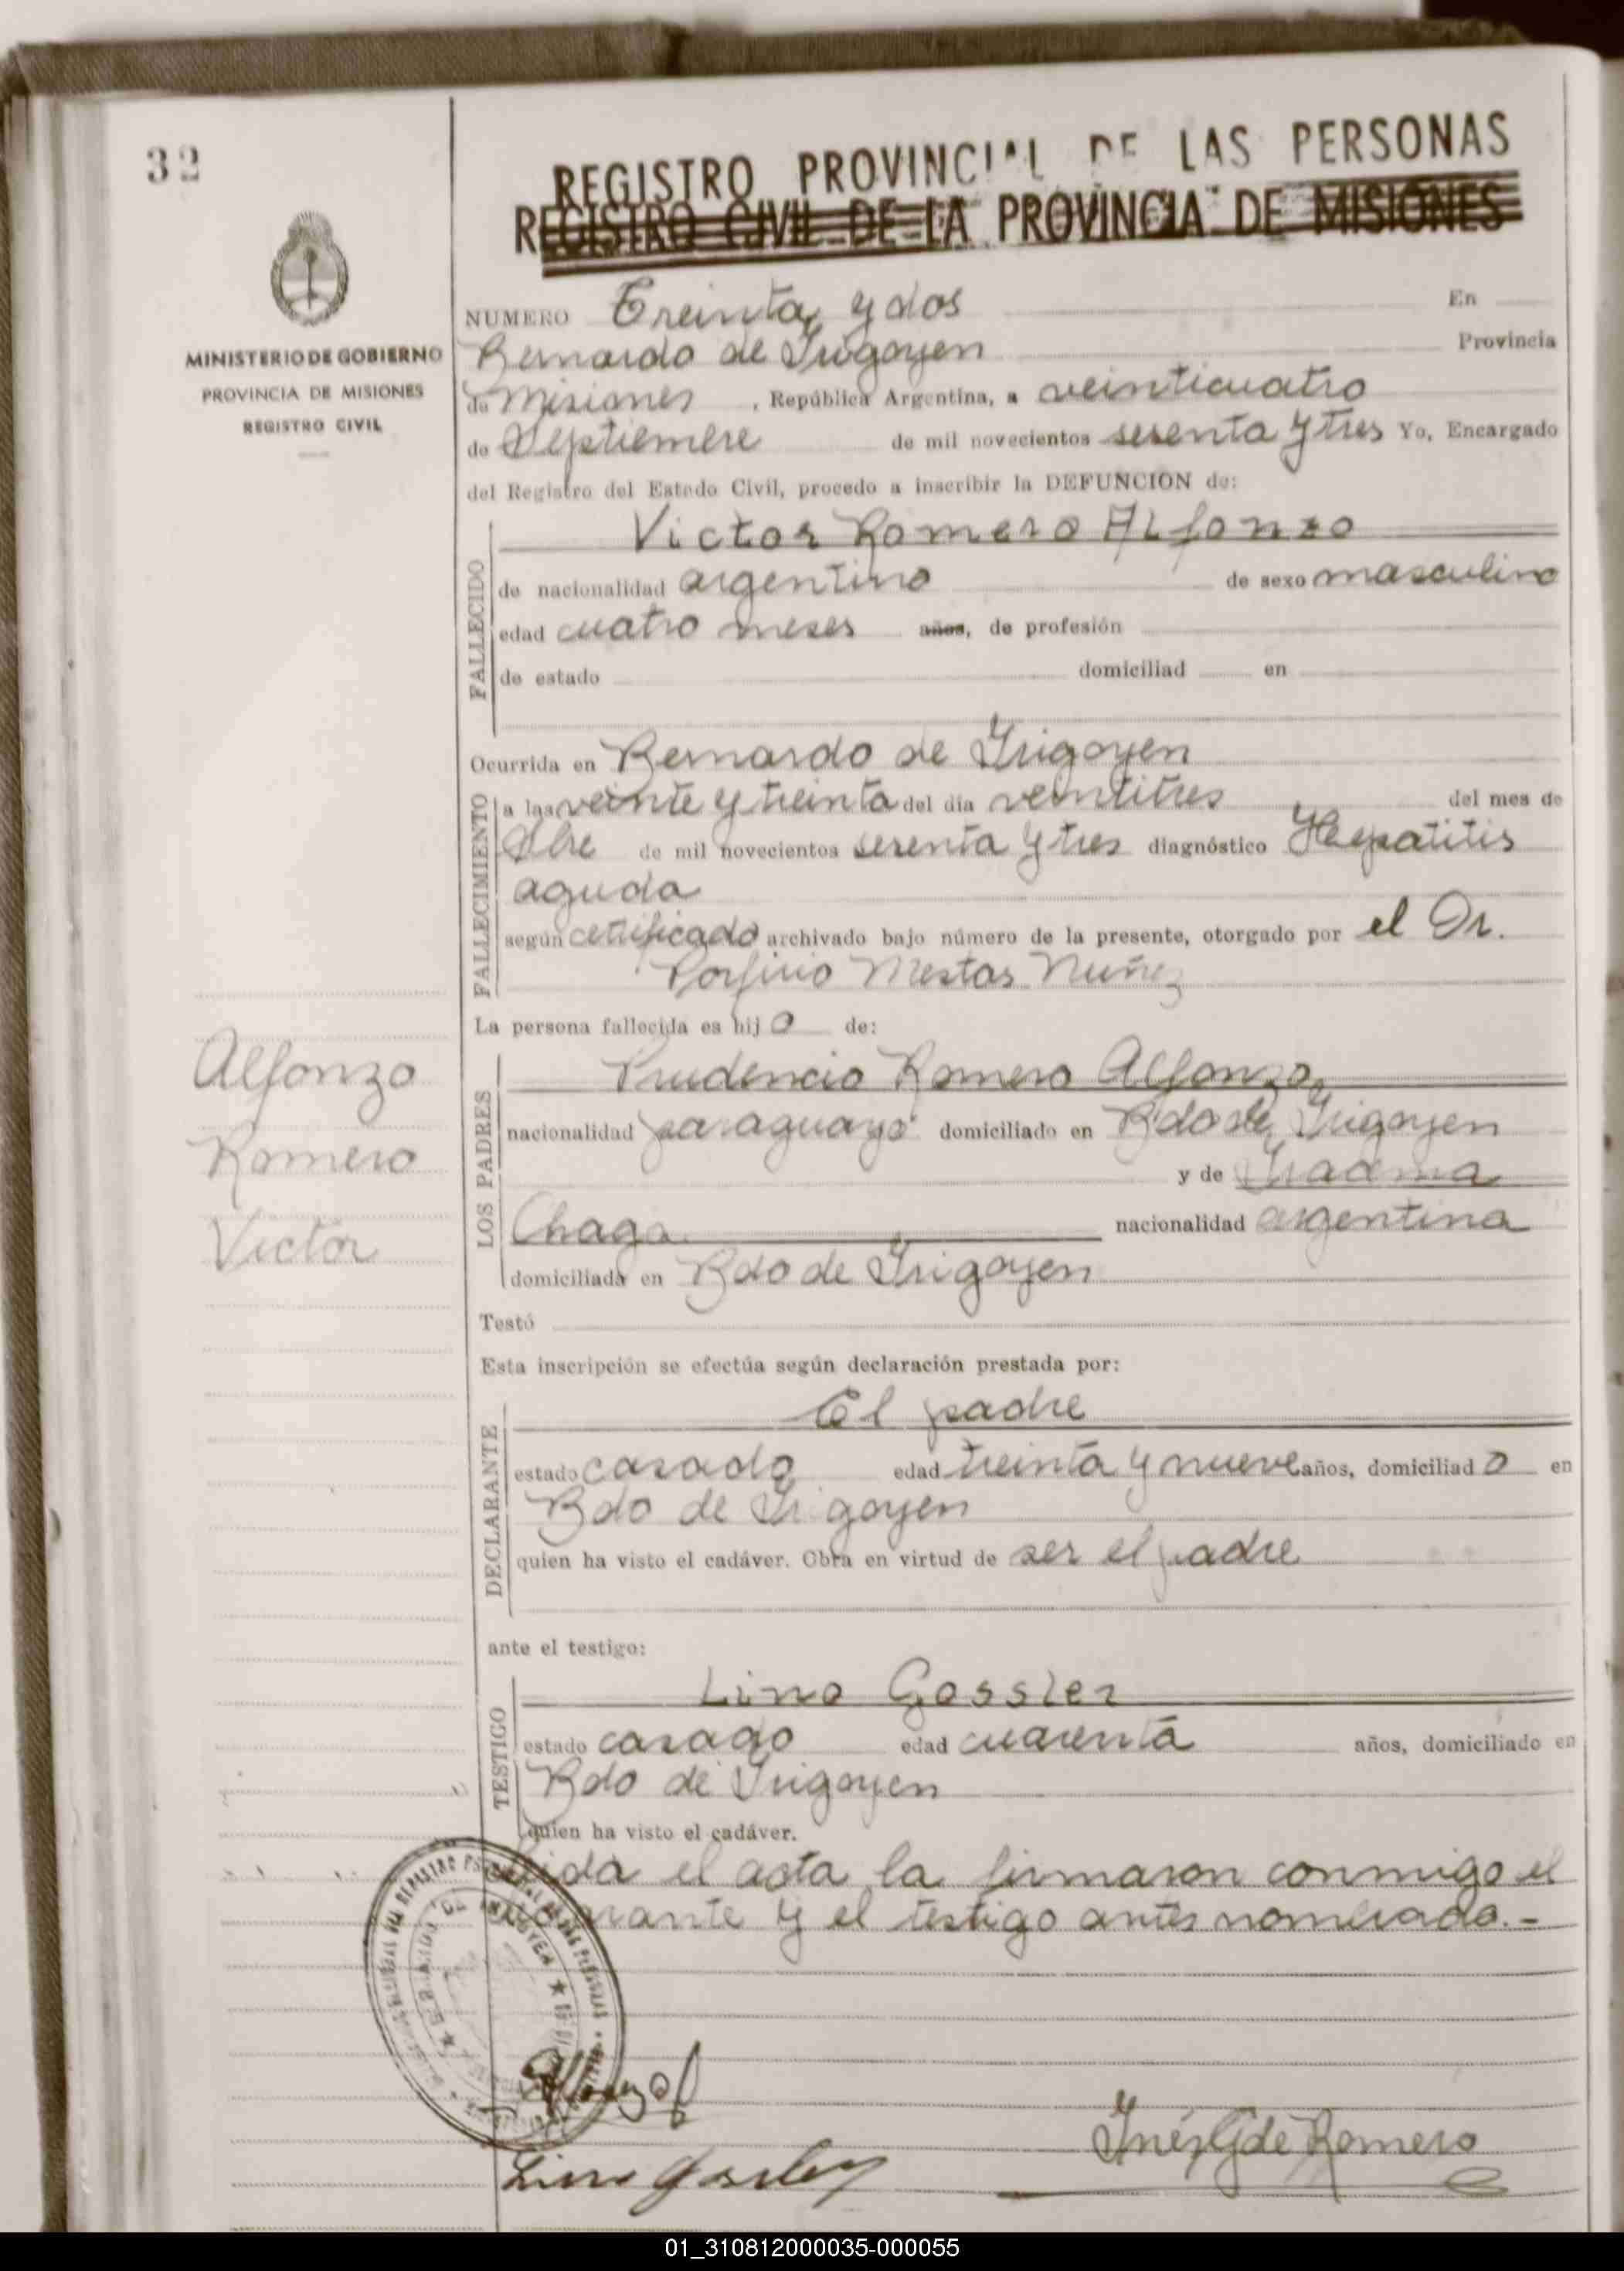 32
REGISTRO PROVINCIAL DE LAS PERSONAS
REGISTRO CIVIL DE LA PROVINCIA DE MISIONES
MINISTERIO DE GOBIERNO
PROVINCIA DE MISIONES
REGISTRO CIVIL
NUMERO Treinta y dos En
Bernardo de Irigoyen Provincia
de Misiones, República Argentina, a veinticuatro
de Septiembre de mil novecientos sesenta y tres Yo, Encargado
del Registro del Estado Civil, procedo a inscribir la DEFUNCION de:
FALLECIDO
Victor Romero Alfonzo
de nacionalidad argentino de sexo masculino
edad cuatro meses años, de profesión
de estado domiciliad en
Ocurrida en Bernardo de Irigoyen
FALLECIMIENTO
a las veinte y treinta del día veintitres del mes de
de mil novecientos sesenta y tres diagnóstico Hepatitis
aguda
según certificado archivado bajo número de la presente, otorgado por el Dr.
Porfirio Mestas Nuñez
La persona fallecida es hijo de:
LOS PADRES
Prudencio Romero Alfonzo
nacionalidad paraguayo domiciliado en Bdo de Irigoyen
y de
Chaga nacionalidad argentina
domiciliada en Bdo de Irigoyen
Alfonzo
Romero
Victor
Testó
Esta inscripción se efectúa según declaración prestada por:
DECLARANTE
El padre
estado casado edad treinta y nueve años, domiciliado en
Bdo de Irigoyen
quien ha visto el cadáver. Obra en virtud de ser el padre
ante el testigo:
TESTIGO
Lino Gossler
estado casado edad cuarenta años, domiciliado en
Bdo de Irigoyen
quien ha visto el cadáver.
Leida el acta la firmaron conmigo el
declarante y el testigo antes nombrado.-
Lino Gossler
Inés G de Romero
01_310812000035-000055